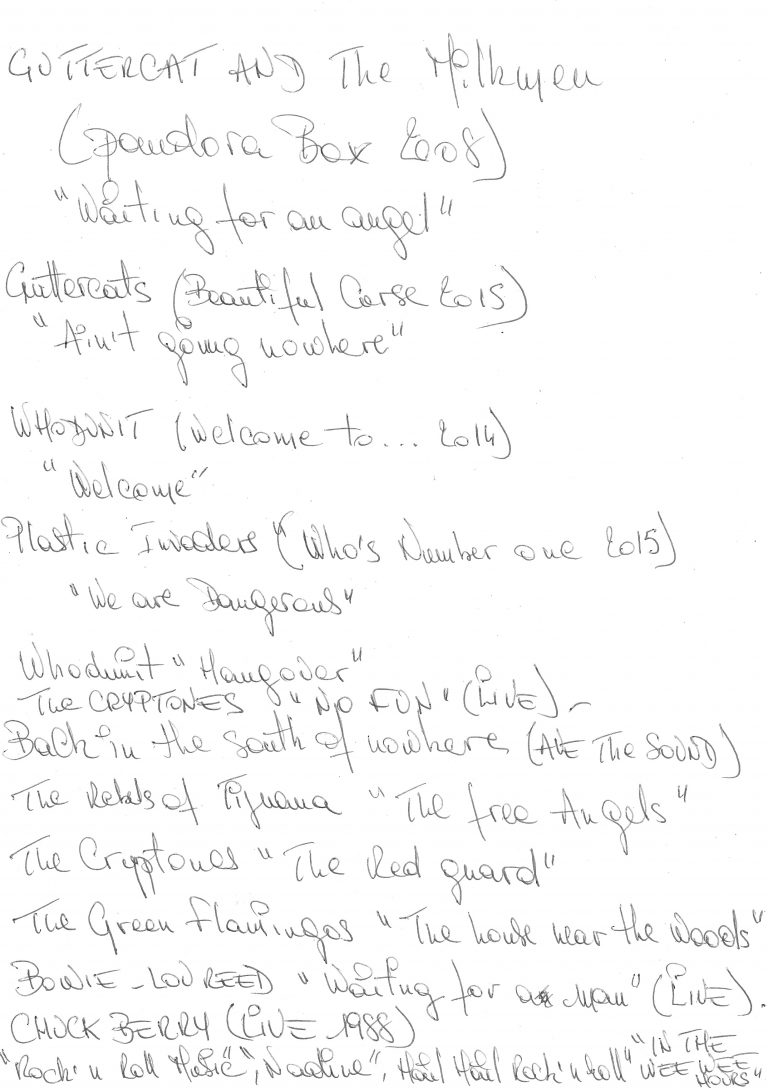 GUTTERCAT AND The Milkmen
(pandora Box 2008)
"Waiting for an angel"
Guttercats (Beautiful Curse 2015)
"Ain't going nowhere"
WHODUNIT (Welcome to... 2014)
"Welcome"
Plastic Invaders "(Who's Number one 2015)
"We are Dangerous"
Whodunit "Hangover"
The CRYPTONES "NO FUN" (LIVE).-
Back in the south of nowhere (AVE The SOUND)
The Rebels of Tijuana "The free Angels"
The Cryptones "The Red guard"
The Green Flamingos "The house near the woods"
BOWIE - LOU REED "Waiting for a man" (LIVE).
CHUCK BERRY (LIVE 1988)
"Rock'n Roll Music", "Nadine", Hail Hail Rock'n roll" "IN THE
WEE WEE
HOURS"